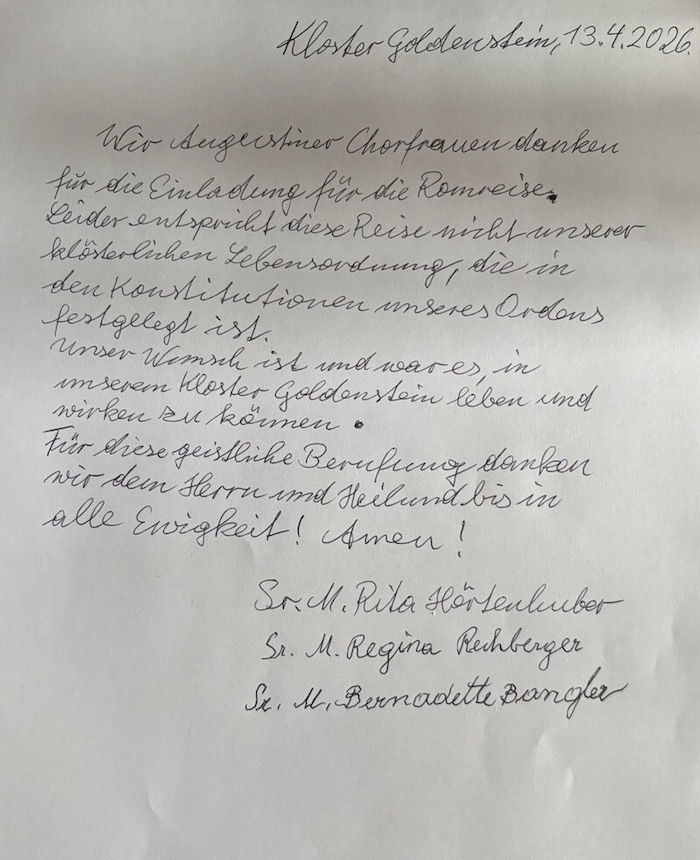 Kloster Goldenstein, 13.4.2026.
Wir Augustiner Chorfrauen danken
für die Einladung für die Romreise.
Leider entspricht diese Reise nicht unserer
klösterlichen Lebensordnung, die in
den Konstitutionen unseres Ordens
festgelegt ist.
Unser Wunsch ist und war es, in
unserem Kloster Goldenstein leben und
wirken zu können.
Für diese geistliche Berufung danken
wir dem Herrn und Heilund bis in
alle Ewigkeit! Amen!
Sr. M. Rita Hörtenhuber
Sr. M. Regina Rechberger
Sr. M. Bernadette Bangler